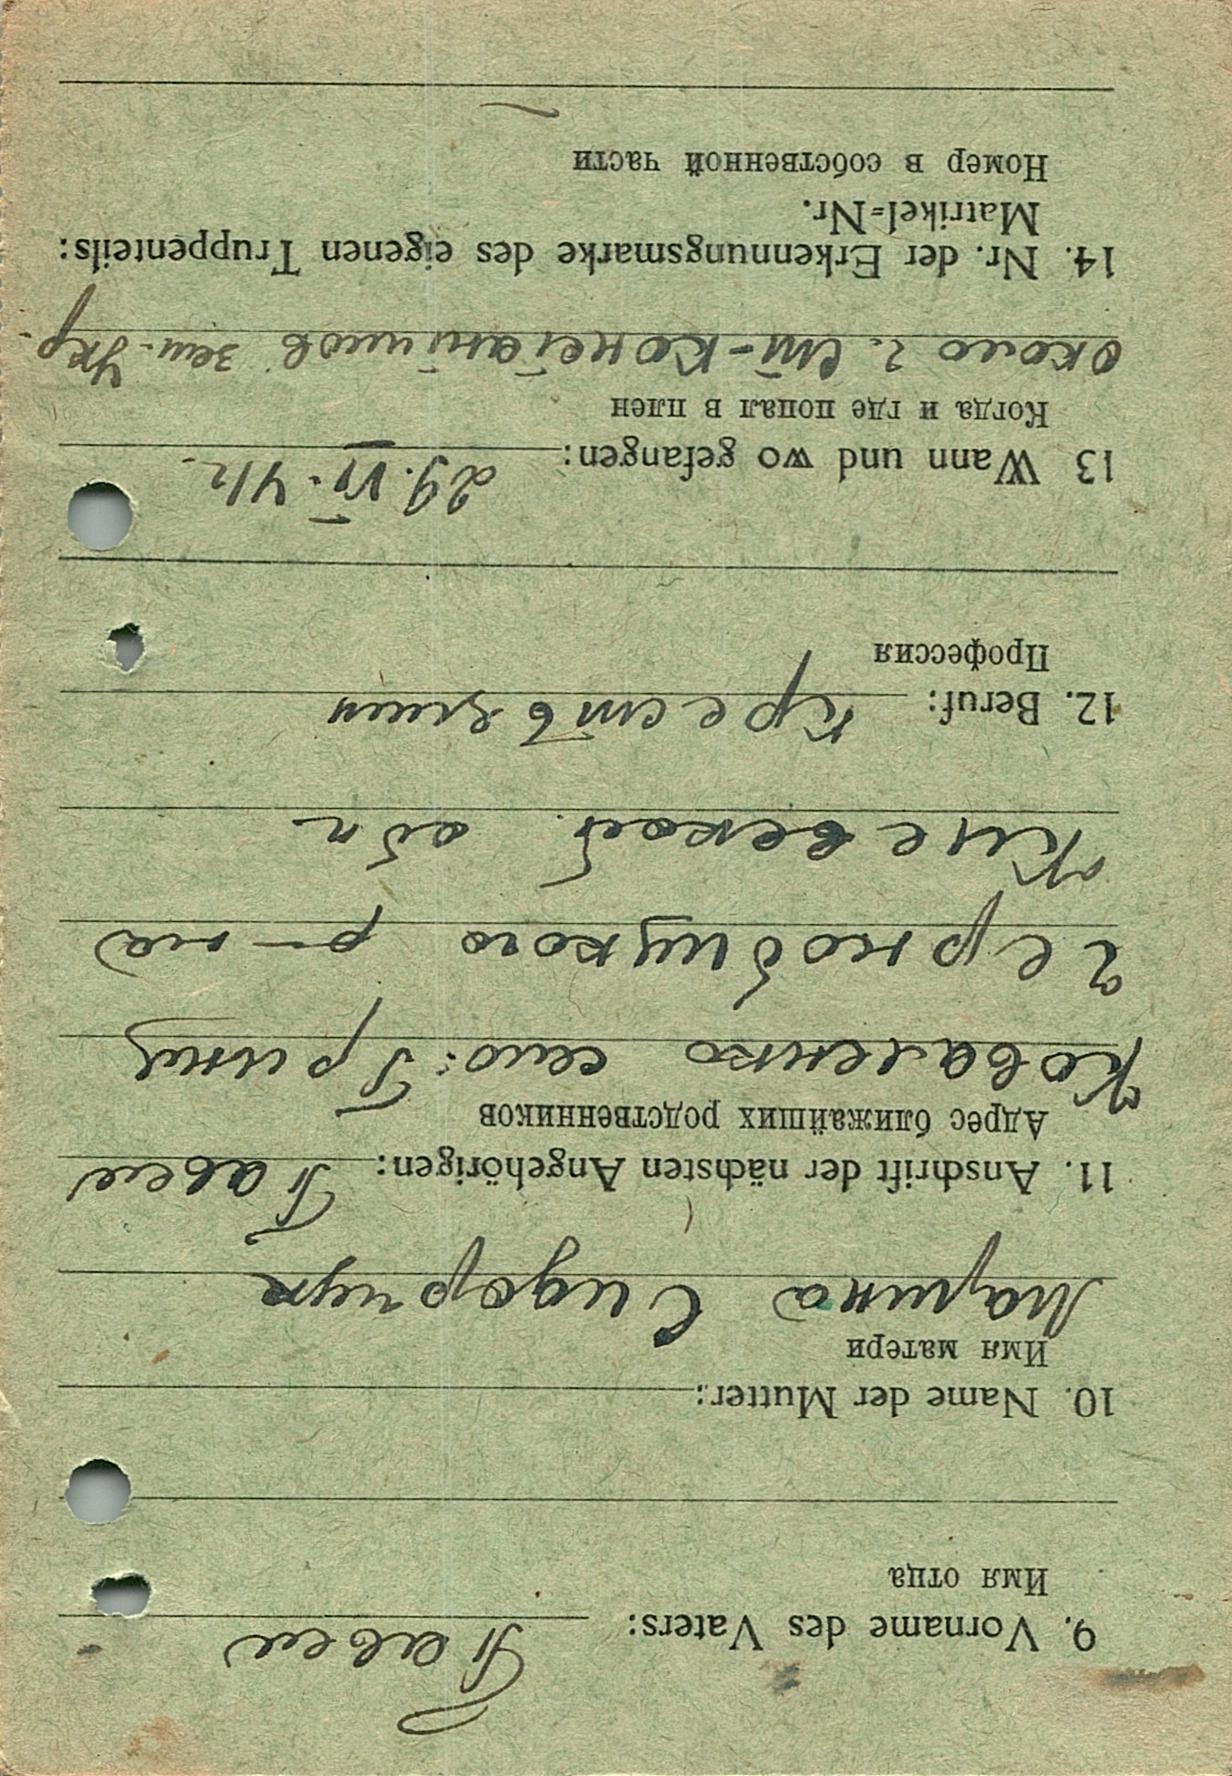 9. Vorname des Vaters: Павел
Имя отца
10. Name der Mutter:
Имя матери
Марина Сидорчук
11. Anschrift der nächsten Angehörigen: Павел
Адрес ближайших родственников
Коваленко село:
р-на
Киевской обл
12. Beruf: крестьянин
Профессия
13 Wann und wo gefangen: 29.VI.41г.
Когда и где попал в плен
около г. зап. Укр.
14. Nr. der Erkennungsmarke des eigenen Truppenteils:
Matrikel=Nr.
Номер в собственной части